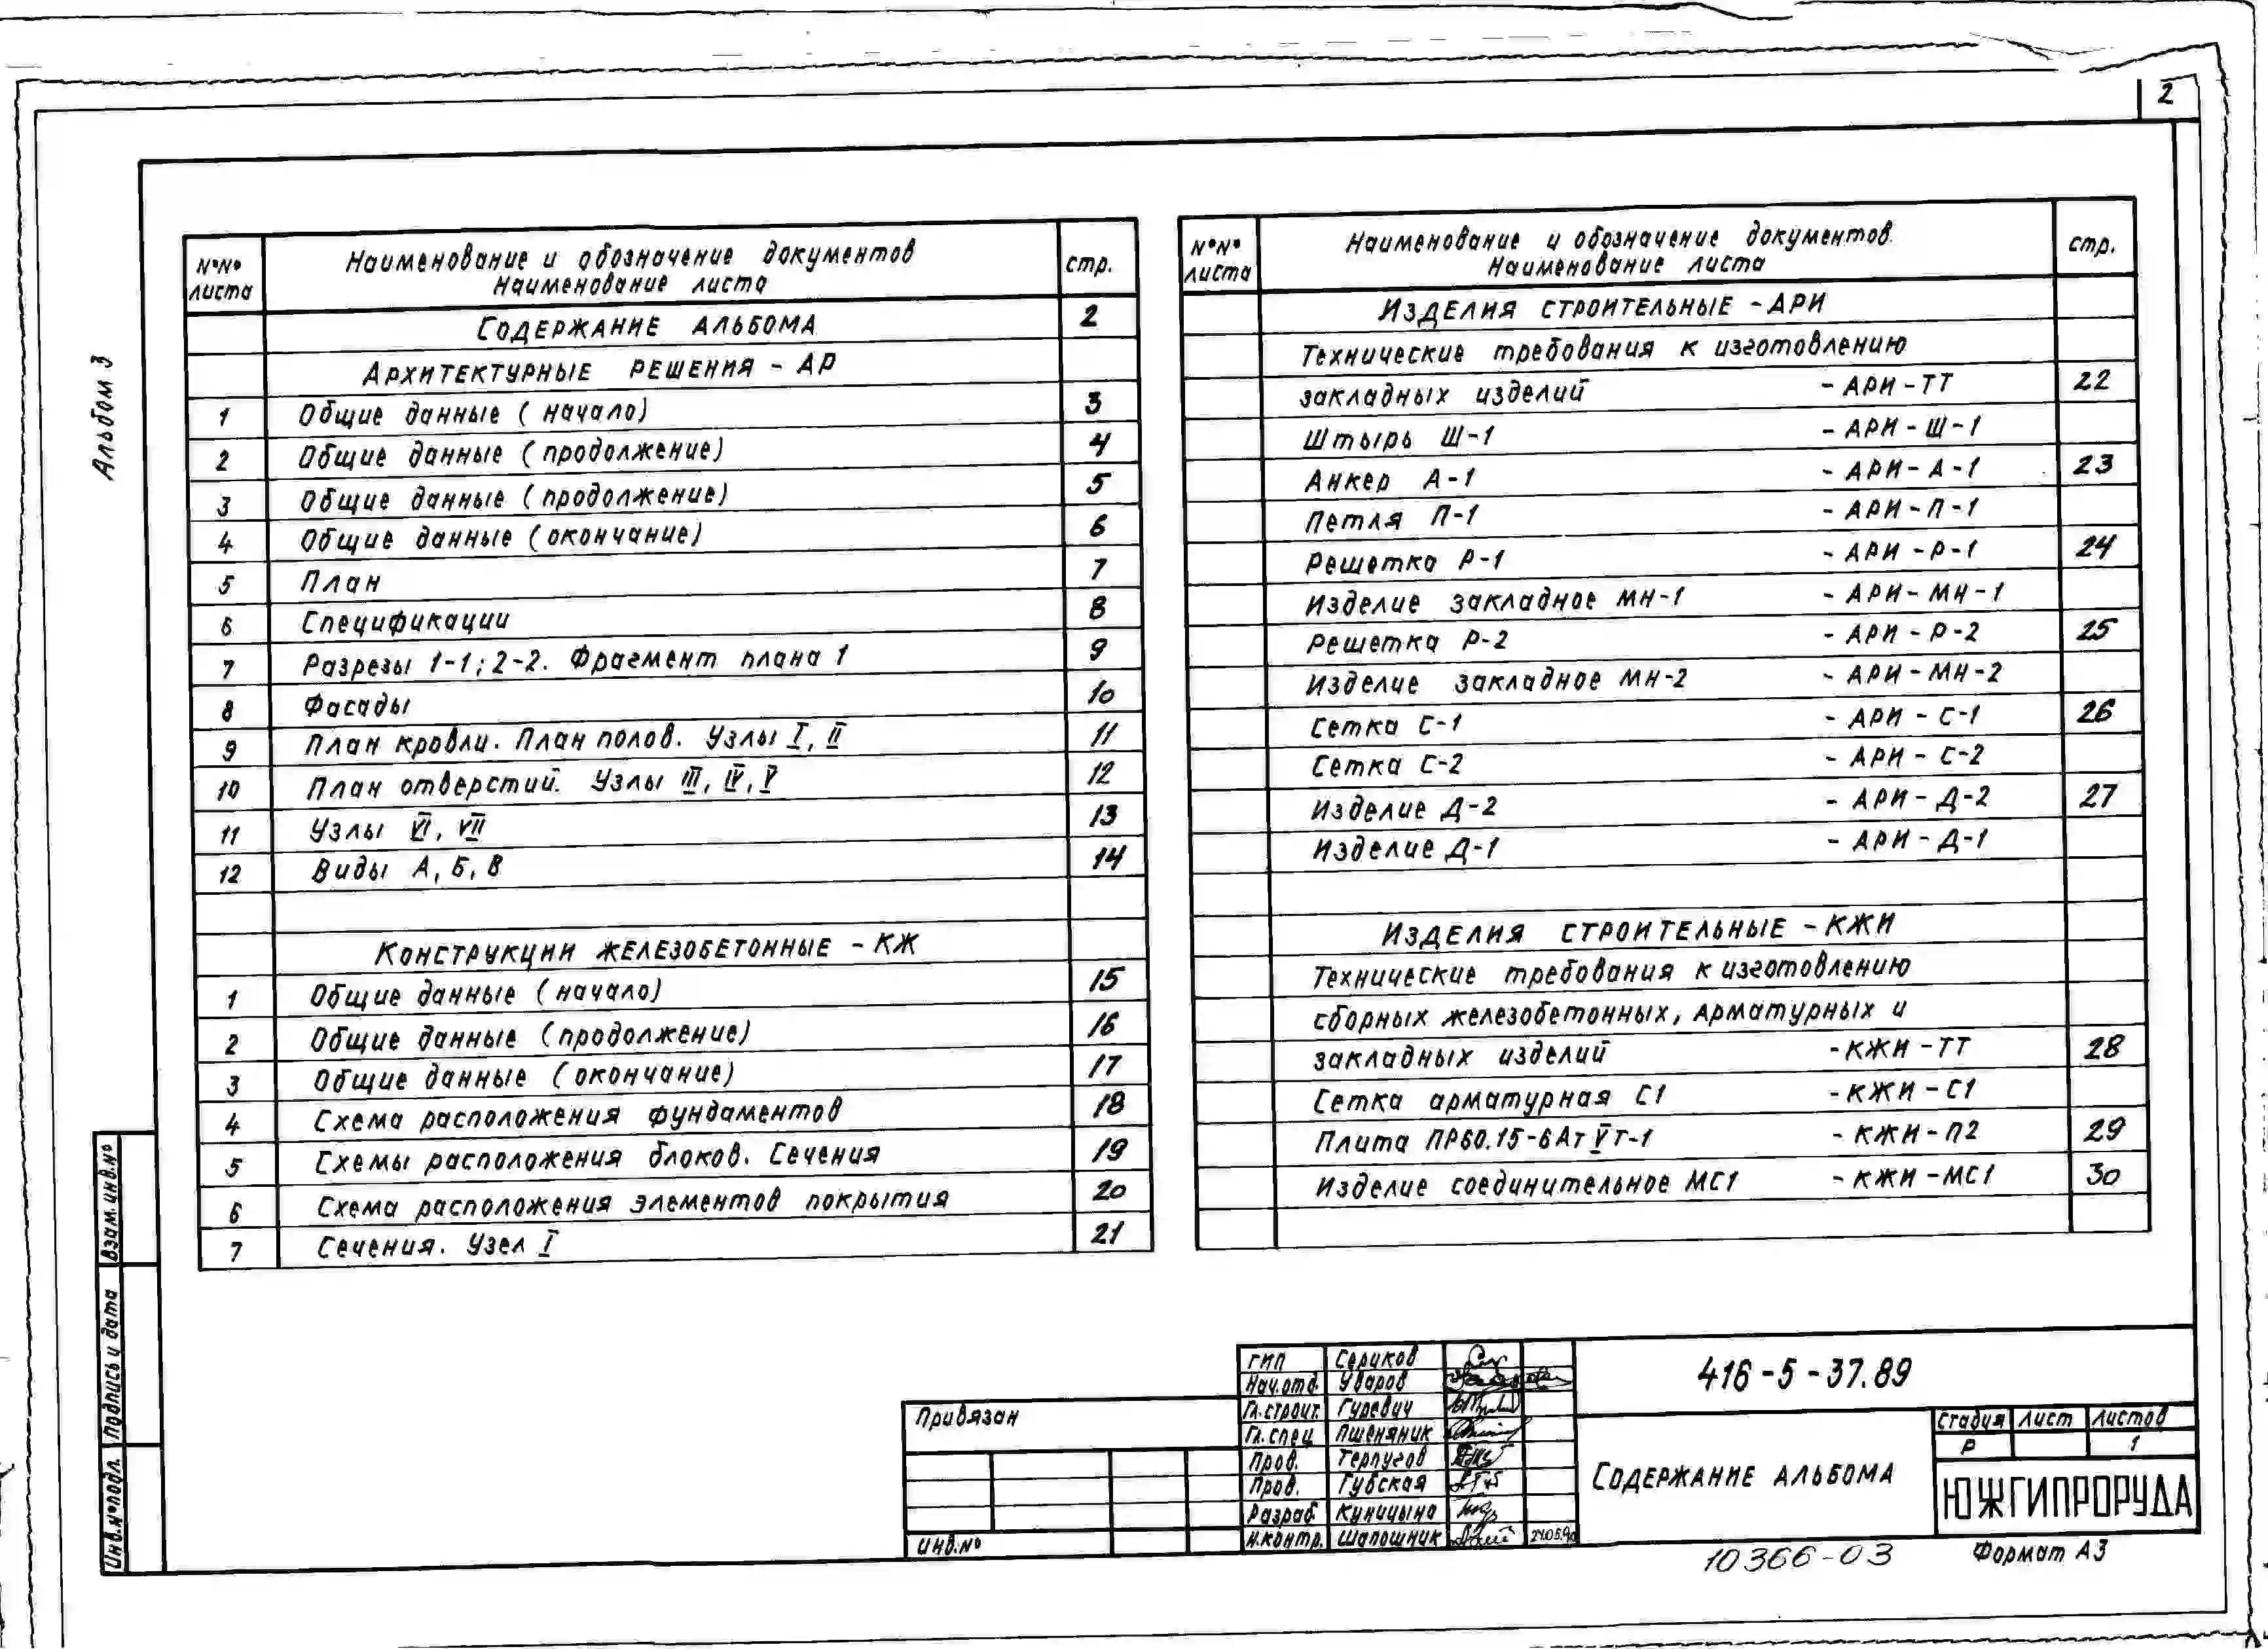 2
Альбом 3
№№ листа | Наименование и обозначение документов Наименование листа | стр.
СОДЕРЖАНИЕ АЛЬБОМА | 2
АРХИТЕКТУРНЫЕ РЕШЕНИЯ - АР
1 | Общие данные (начало) | 3
2 | Общие данные (продолжение) | 4
3 | Общие данные (продолжение) | 5
4 | Общие данные (окончание) | 6
5 | План | 7
6 | Спецификации | 8
7 | Разрезы 1-1; 2-2. Фрагмент плана 1 | 9
8 | Фасады | 10
9 | План кровли. План полов. Узлы I, II | 11
10 | План отверстий. Узлы III, IV, V | 12
11 | Узлы VI, VII | 13
12 | Виды А, Б, В | 14
КОНСТРУКЦИИ ЖЕЛЕЗОБЕТОННЫЕ - КЖ
1 | Общие данные (начало) | 15
2 | Общие данные (продолжение) | 16
3 | Общие данные (окончание) | 17
4 | Схема расположения фундаментов | 18
5 | Схемы расположения блоков. Сечения | 19
6 | Схема расположения элементов покрытия | 20
7 | Сечения. Узел I | 21
№№ листа | Наименование и обозначение документов. Наименование листа | стр.
ИЗДЕЛИЯ СТРОИТЕЛЬНЫЕ - АРИ
Технические требования к изготовлению
закладных изделий - АРИ - ТТ | 22
Штырь Ш-1 - АРИ - Ш-1
Анкер А-1 - АРИ - А-1 | 23
Петля П-1 - АРИ - П-1
Решетка Р-1 - АРИ - Р-1 | 24
Изделие закладное МН-1 - АРИ - МН-1
Решетка Р-2 - АРИ - Р-2 | 25
Изделие закладное МН-2 - АРИ - МН-2
Сетка С-1 - АРИ - С-1 | 26
Сетка С-2 - АРИ - С-2
Изделие Д-2 - АРИ - Д-2 | 27
Изделие Д-1 - АРИ - Д-1
ИЗДЕЛИЯ СТРОИТЕЛЬНЫЕ - КЖИ
Технические требования к изготовлению
сборных железобетонных, арматурных и
закладных изделий - КЖИ - ТТ | 28
Сетка арматурная С1 - КЖИ - С1
Плита ПР60.15-6АтVт-1 - КЖИ - П2 | 29
Изделие соединительное МС1 - КЖИ - МС1 | 30
Взам. инв.№
Подпись и дата
Инв.№ подл.
Привязан
Инв.№
ГИП Сериков
Нач.отд. Уваров
Гл.строит. Гуревич
Гл.спец Пшеняник
Пров. Терпугов
Пров. Губская
Разраб. Куницына
Н.контр. Шапошник
416-5-37.89
СОДЕРЖАНИЕ АЛЬБОМА
Стадия Лист Листов
Р 1
ЮЖГИПРОРУДА
10366-03
Формат А3